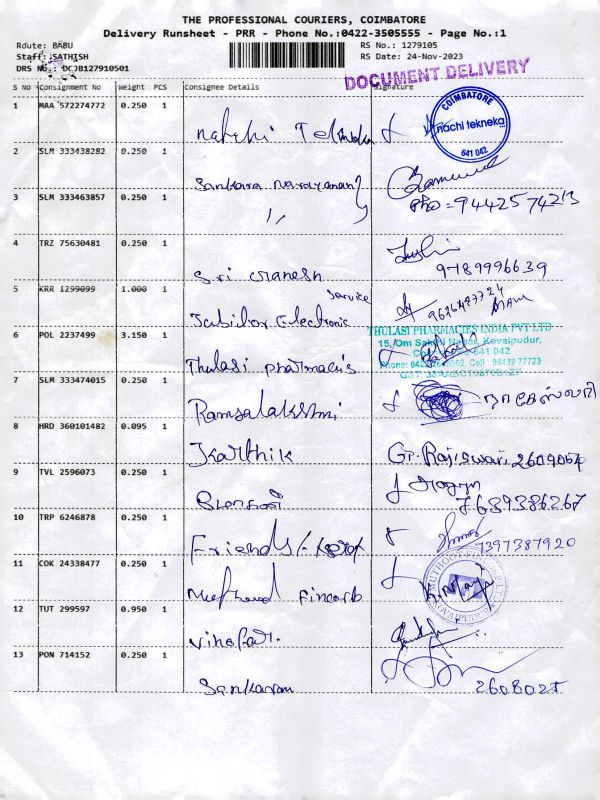 THE PROFESSIONAL COURIERS, COIMBATORE
Delivery Runsheet - PRR - Phone No.:0422-3505555 - Page No.:1
Route: BABU RS No.: 1279105
Staff: SATHISH RS Date: 24-Nov-2023
DRS No.: DCJB127910501
DOCUMENT DELIVERY
S No Consignment No Weight PCS Consignee Details Signature
1 MAA 572274772 0.250 1
COIMBATORE
nachi tekneka
641 042
2 SLM 333438282 0.250 1
Sankara narayanan
3 SLM 333463857 0.250 1
Pho = 9442574213
"
4 TRZ 75630481 0.250 1
9789996639
Sri Ganesh
5 KRR 1299099 1.000 1
Service
Electronic
6 POL 2237499 3.150 1
THULASI PHARMACIES INDIA PVT LTD
15, Om Sakthi Nagar, Kovaipudur,
641 042
Thulasi
7 SLM 333474015 0.250 1
Ramsalakshmi
8 HRD 360101482 0.095 1
Karthik
G. Rajeswari 2609054
9 TVL 2596073 0.250 1
7639386267
10 TRP 6246878 0.250 1
Friends
7397387920
11 COK 24338477 0.250 1
Muthoot Fincorb
12 TUT 299597 0.950 1
13 PON 714152 0.250 1
Sankaran
2608025